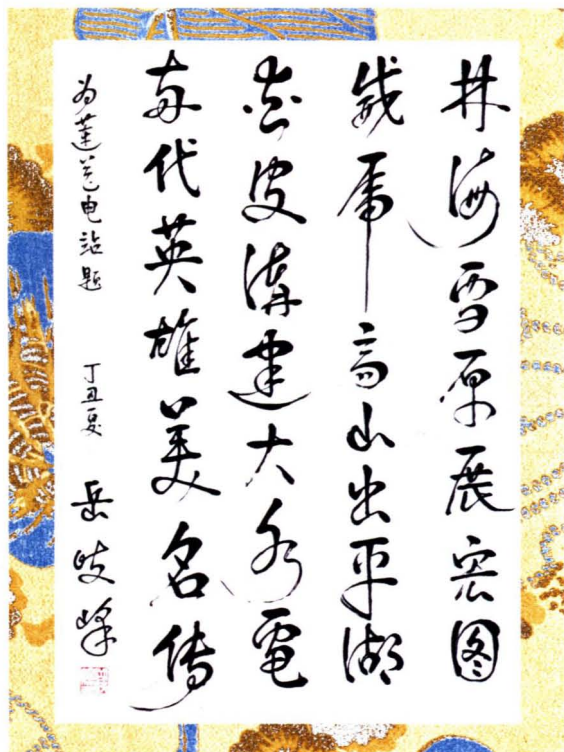 林海雪原展宏图
威虎高山出平湖
夹皮溝建大水電
两代英雄美名传
为莲花电站题 丁丑夏 岳岐峰